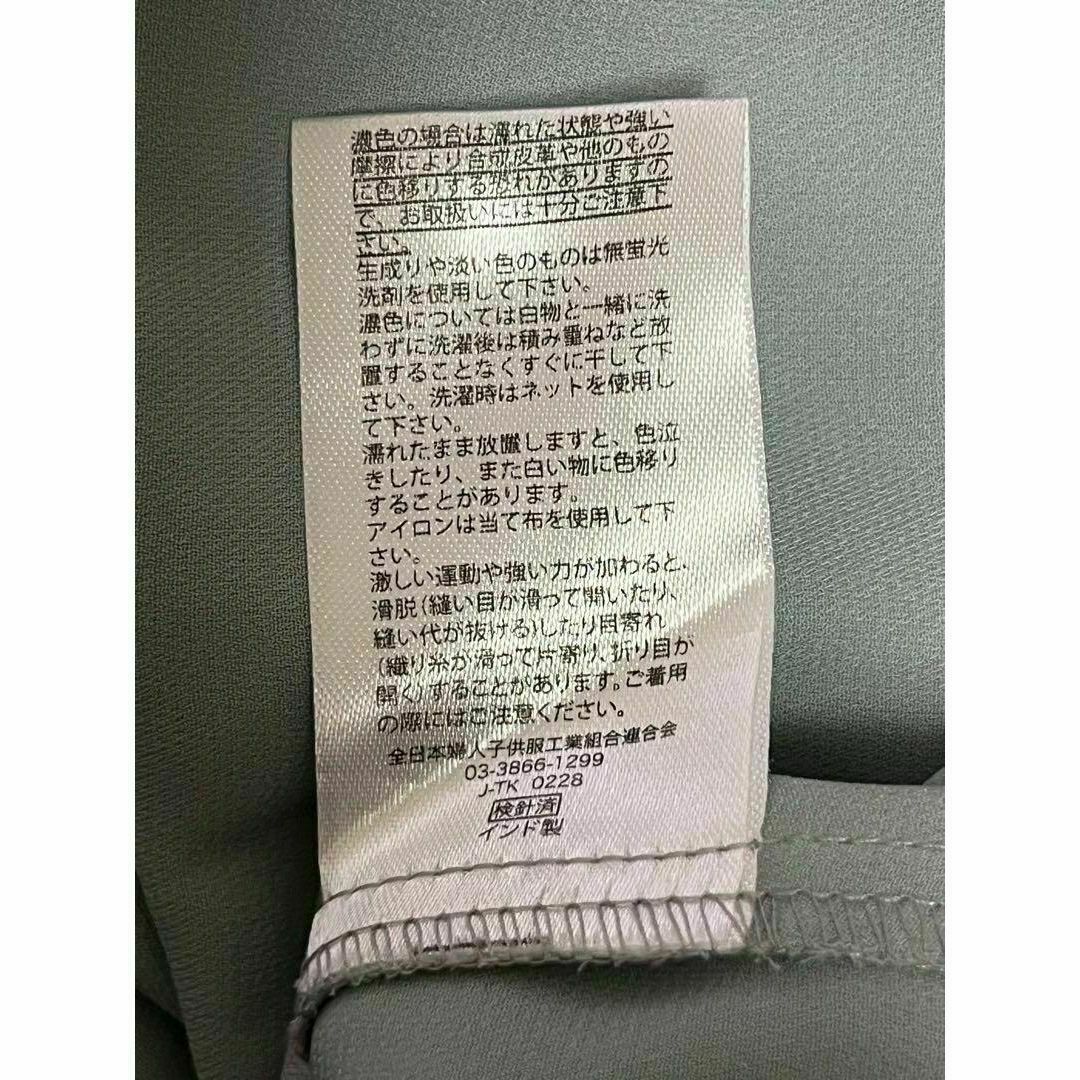 濃色の場合は濡れた状態や強い
摩擦により合成皮革や他のもの
に色移りする恐れがありますの
で、お取扱いには十分ご注意下
さい。
生成りや淡い色のものは無蛍光
洗剤を使用して下さい。
濃色については白物と一緒に洗
わずに洗濯後は積み重ねなど放
置することなくすぐに干して下
さい。洗濯時はネットを使用し
て下さい。
濡れたまま放置しますと、色泣
きしたり、また白い物に色移り
することがあります。
アイロンは当て布を使用して下
さい。
激しい運動や強い力が加わると、
滑脱(縫い目が滑って開いたり、
縫い代が抜ける)したり目寄れ
(織り糸が滑って片寄り、折り目が
開く)することがあります。ご着用
の際にはご注意ください。
全日本婦人子供服工業組合連合会
03-3866-1299
J-TK 0228
検針済
インド製